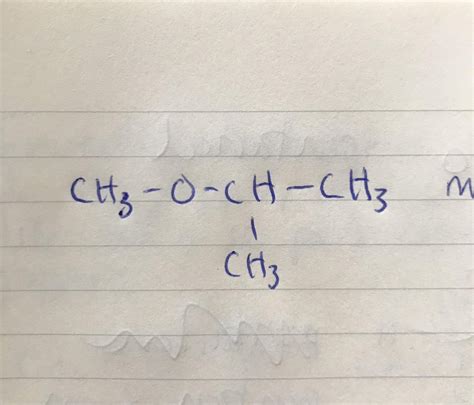 CH3-O-CH-CH3 m
CH3